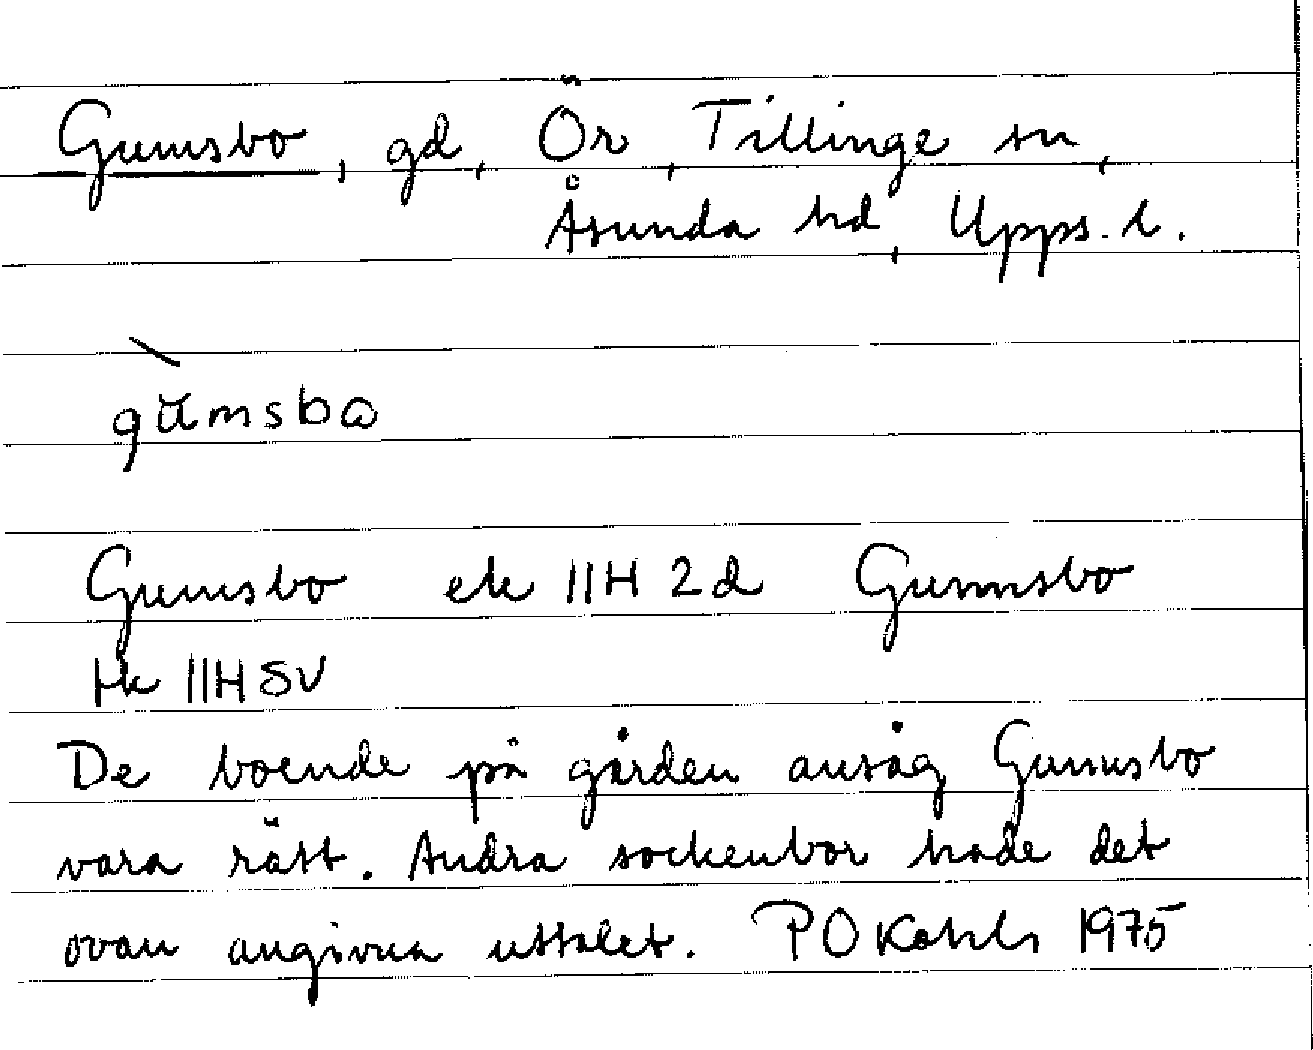 Gumsbo, gd, Ör, Tillinge sn,
Åsunda hd, Upps. l.
gu̇̀msbɷ
Gumsbo ek 11H 2d Gummsbo
tk 11H SV
De boende på gården ansåg Gummsbo
vara rätt. Andra sockenbor hade det
ovan angivna uttalet. P O Kahls 1975